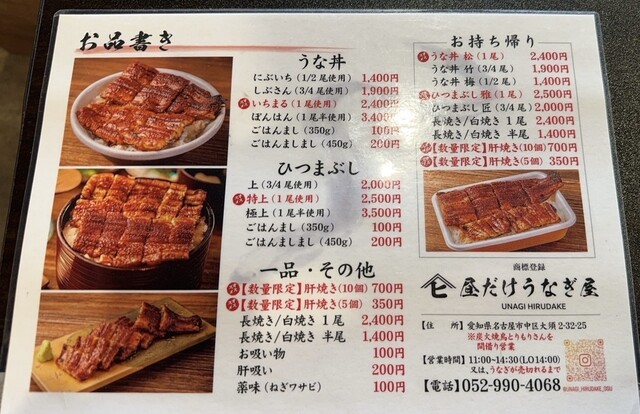 お品書き
うな丼
にぶいち(1/2尾使用) 1,400円
しぶさん(3/4尾使用) 1,900円
いちまる(1尾使用) 2,400円
ぼんはん(1尾半使用) 3,400円
ごはんまし(350g) 100円
ごはんましまし(450g) 200円
ひつまぶし
上(3/4尾使用) 2,000円
特上(1尾使用) 2,500円
極上(1尾半使用) 3,500円
ごはんまし(350g) 100円
ごはんましまし(450g) 200円
一品・その他
【数量限定】肝焼き(10個) 700円
【数量限定】肝焼き(5個) 350円
長焼き/白焼き 1尾 2,400円
長焼き/白焼き 半尾 1,400円
お吸い物 100円
肝吸い 200円
薬味(ねぎワサビ) 100円
お持ち帰り
うな丼 松(1尾) 2,400円
うな丼 竹(3/4尾) 1,900円
うな丼 梅(1/2尾) 1,400円
ひつまぶし 雅(1尾) 2,500円
ひつまぶし 匠(3/4尾) 2,000円
長焼き/白焼き 1尾 2,400円
長焼き/白焼き 半尾 1,400円
【数量限定】肝焼き(10個) 700円
【数量限定】肝焼き(5個) 350円
商標登録
昼だけうなぎ屋
UNAGI HIRUDAKE
【住 所】愛知県名古屋市中区大須 2-32-25
※炭火焼鳥とりもりさんを
間借り営業
【営業時間】11:00~14:30(LO14:00)
又は、うなぎが売切れるまで
【電話】052-990-4068
@UNAGI_HIRUDAKE_OSU